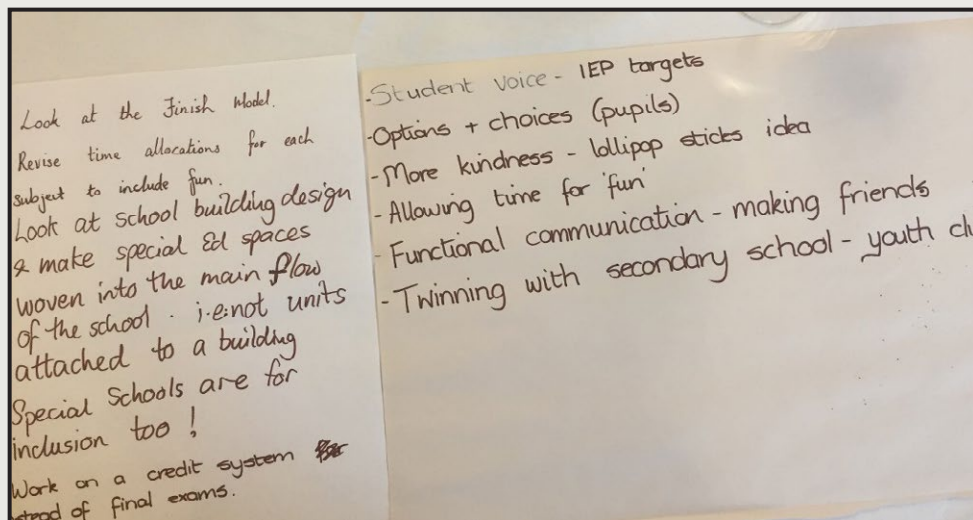 Look at the Finish Model.
Revise time allocations for each
subject to include fun.
Look at school building design
& make special Ed spaces
woven into the main flow
of the school. i.e. not units
attached to a building
Special Schools are for
inclusion too!
Work on a credit system
stead of final exams.
- Student voice - IEP targets
- Options + choices (pupils)
- More kindness - lollipop sticks idea
- Allowing time for 'fun'
- Functional communication - making friends
- Twinning with secondary school - youth clu